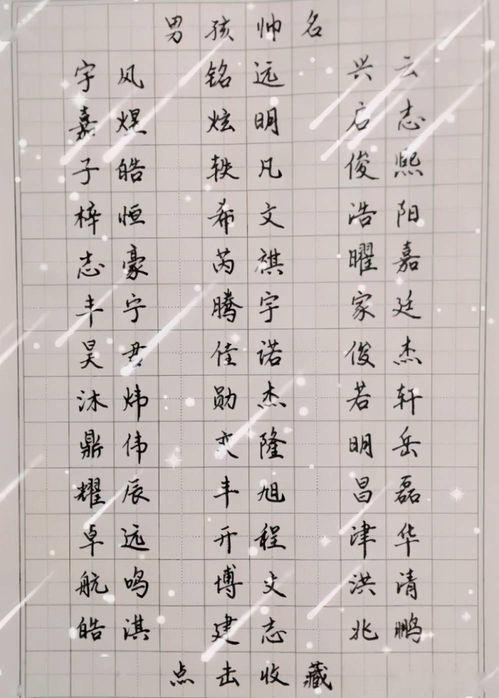 男孩帅名
宇风 铭远 兴云
嘉煜 炫明 启志
子皓 轶凡 俊熙
梓恒 希文 浩阳
志豪 芮祺 曜嘉
丰宁 腾宇 家廷
昊君 佳诺 俊杰
沐炜 勋杰 若轩
鼎伟 奕隆 明岳
耀辰 丰旭 昌磊
卓远 开程 津华
航鸣 博文 洪清
皓淇 建志 兆鹏
点击收藏